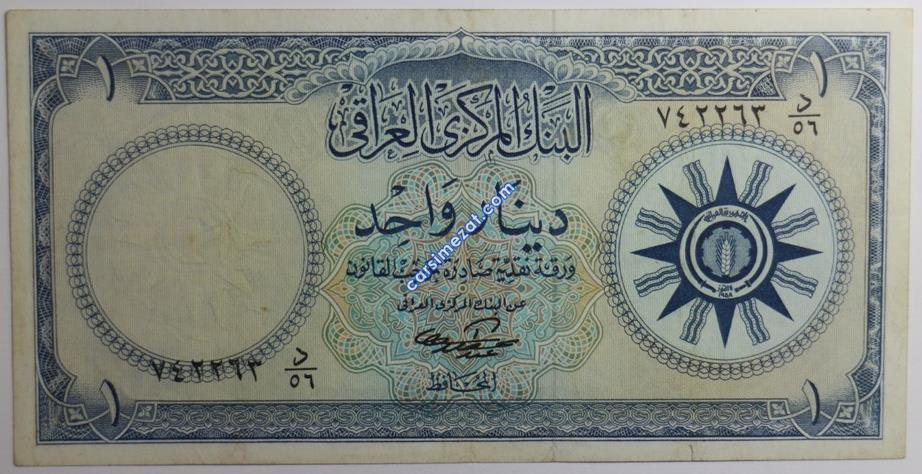 ١ ١
البنك المركزي العراقي
٧٤٢٢٦٣ د/٥٦
دينار واحد
ورقة نقدية صادرة بموجب القانون
عن البنك المركزي العراقي
المحافظ
٧٤٢٢٦٣ د/٥٦
١ ١
الجمهورية العراقية
١٤ تموز
١٩٥٨
carsimezat.com